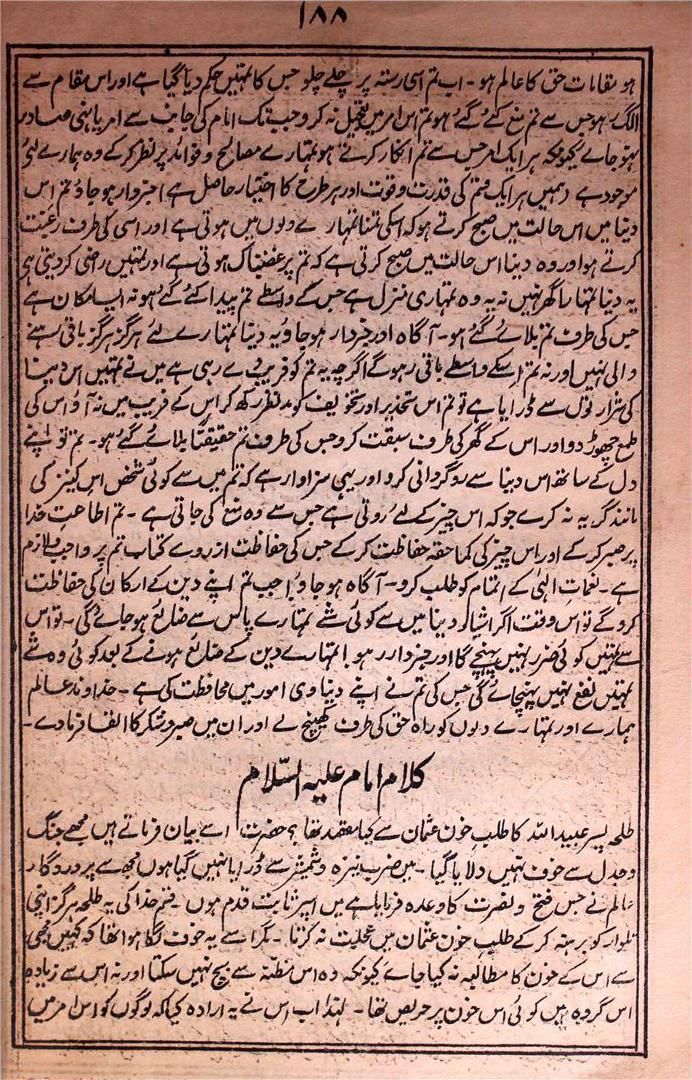 ۱۸۸
ہو مقامات حق کا عالم ہو۔ اب تم اسی رستہ پر چلے چلو جس کا تمہیں حکم دیا گیا ہے اور اس مقام سے
الگ رہو جس سے تم منع کئے گئے ہو تم اس امر میں تعجیل نہ کرو جب تک امام کی جانب سے امر یا نہی صادر
ہو جائے کیونکہ ہر ایک امر جس سے تم انکار کرتے ہو تمہارے مصالح و فوائد پر نظر کر کے وہ ہمارے لئے
موجود ہے (ہمیں ہر ایک قسم کی قدرت و قوت اور ہر طرح کا اختیار حاصل ہے) خبردار ہو جاؤ تم اس
دنیا میں اس حالت میں صبح کرتے ہو کہ اسکی تمنا تمہارے دلوں میں ہوتی ہے اور اسی کی طرف رغبت
کرتے ہو اور وہ دنیا اس حالت میں صبح کرتی ہے کہ تم پر غضبناک ہوتی ہے اور تمہیں راضی کر دیتی ہی
یہ دنیا تمہارا گھر نہیں نہ یہ وہ تمہاری منزل ہے جس کے واسطے تم پیدا کئے گئے ہو نہ ایسا مکان ہے
جس کی طرف تم بلائے گئے ہو۔ آگاہ اور خبردار ہو جاؤ یہ دنیا تمہارے لئے ہرگز ہرگز باقی رہنے
والی نہیں اور نہ تم اسکے واسطے باقی رہو گے اگرچہ یہ تم کو فریب دے رہی ہے میں نے تمہیں اس دنیا
کی شرارتوں سے ڈرایا ہے تو تم اس تحذیر اور تخویف کو مدنظر رکھ کر اس کے فریب میں نہ آؤ اس کی
طمع چھوڑ دو اور اس کے گھر کی طرف سبقت کرو جس کی طرف تم حقیقتاً بلائے گئے ہو۔ تم تو اپنے
دل کے ساتھ اس دنیا سے روگردانی کرو اور یہی سزاوار ہے کہ تم میں سے کوئی شخص اس کنیز کی
مانند گریہ نہ کرے جو کہ اس چیز کے لئے روتی ہے جس سے وہ منع کی جاتی ہے۔ تم اطاعت خدا
پر صبر کر کے اور اس چیز کی کما حقہ حفاظت کر کے جس کی حفاظت از روے کتاب تم پر واجب و لازم
ہے۔ نعمات الہی کے اتمام کو طلب کرو۔ آگاہ ہو جاؤ! جب تم اپنے دین کے ارکان کی حفاظت
کرو گے تو اس وقت اگر اشیاء دنیا میں سے کوئی شے تمہارے پاس سے ضائع ہو جائے گی۔ تو اس
سے تمہیں کوئی ضرر نہیں پہنچے گا اور خبردار رہو! تمہارے دین کے ضائع ہونے کے بعد کوئی وہ شے
تمہیں نفع نہیں پہنچائے گی جس کی تم نے اپنے دنیاوی امور میں محافظت کی ہے۔ خداوند عالم
ہمارے اور تمہارے دلوں کو راہ حق کی طرف کھینچ لے اور ان میں صبر و شکر کا القا فرما دے۔
کلام امام علیہ السّلام
طلحہ پسر عبید اللہ کا طلب خون عثمان سے کیا مقصد تھا؟ حضرت اسے بیان فرماتے ہیں مجھے جنگ
و جدل سے خوف نہیں دلایا گیا۔ میں ضرب نیزہ و شمشیر سے ڈرایا نہیں گیا ہوں مجھ سے پروردگار
عالم نے جس فتح و نصرت کا وعدہ فرمایا ہے میں اسپر ثابت قدم ہوں۔ قسم خدا کی یہ طلحہ ہرگز اپنی
تلوار کو برہنہ کر کے طلب خون عثمان میں عجلت نہ کرتا۔ مگر اسے یہ خوف لگا ہوا تھا کہ کہیں مجھی
سے اس کے خون کا مطالبہ نہ کیا جائے کیونکہ وہ اس مظنہ سے بچ نہیں سکتا اور نہ اس سے زیادہ
اس گروہ میں کوئی اس خون پر حریص تھا۔ لہذا اب اس نے یہ ارادہ کیا کہ لوگوں کو اس امر میں